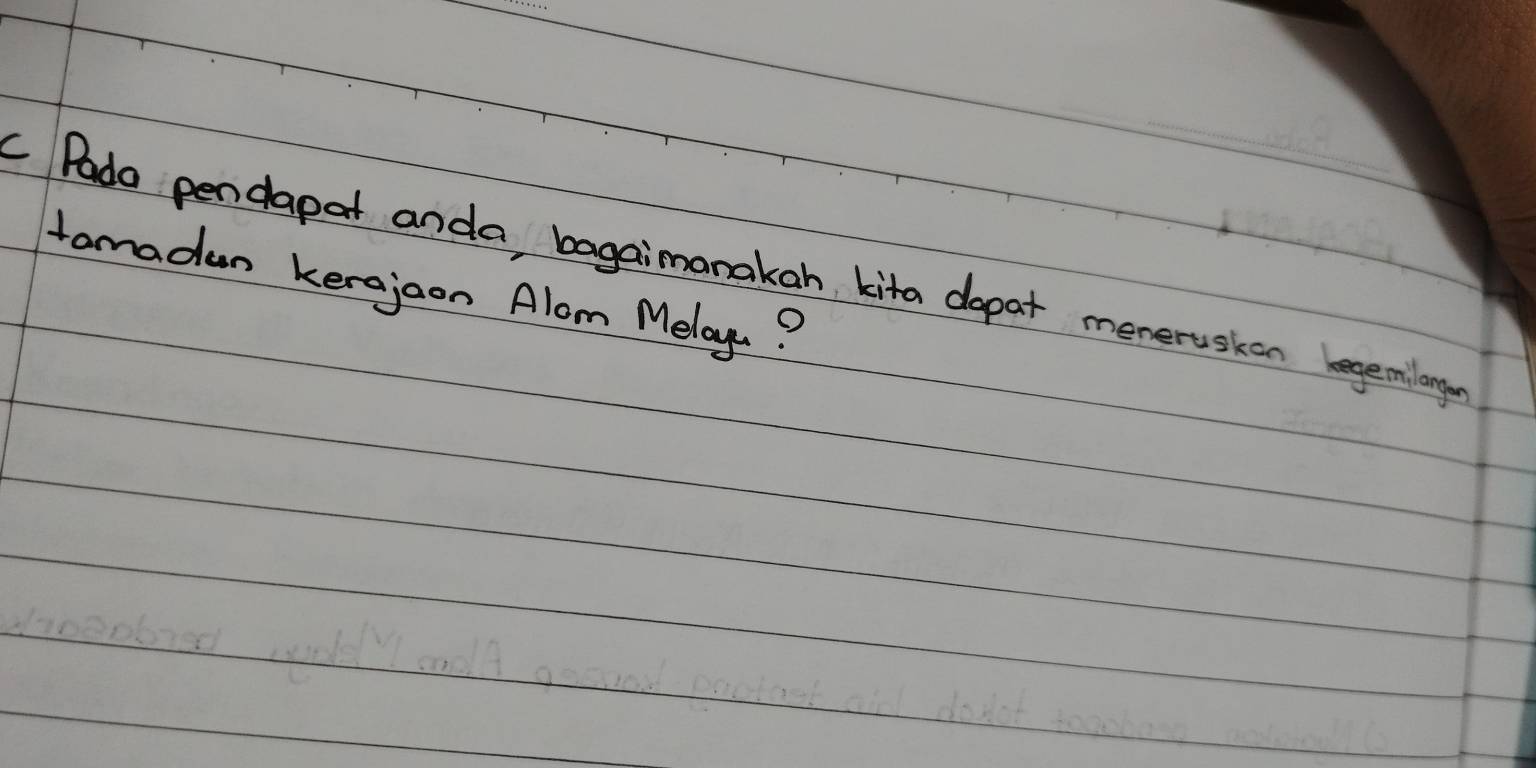 c Pada pendapat anda, bagaimanakah kita dapat meneruskan kegemilangan
tamadun kerajaan Alam Melayu?